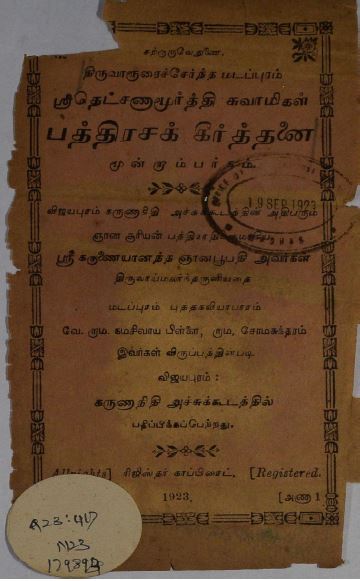 சற்குருவேதுணை.
திருவாரூரைச்சேர்ந்த மடப்புரம்
ஸ்ரீதெட்சணாமூர்த்தி சுவாமிகள்
பத்திரசக் கீர்த்தனை
மூன்றாம்பாகம்.
19 SEP 1923
விஜயபுரம் கருணாநிதி அச்சுக்கூடத்தின் அதிபரும்
ஞான சூரியன்
ஸ்ரீ கருணையானந்த ஞானபூபதி அவர்கள்
திருவாய்மலர்ந்தருளியதை
மடப்புரம் புத்தகவியாபாரம்
வே. ராம. நமசிவாய பிள்ளை, ராம. சோமசுந்தரம்
இவர்கள் விருப்பத்தின்படி
விஜயபுரம் :
கருணாநிதி அச்சுக்கூடத்தில்
பதிப்பிக்கப்பெற்றது.
Allrights] ரிஜிஸ்தர் காப்பிரைட். [Registered.
1923. [அணா 1
Q23:417
N23
179894